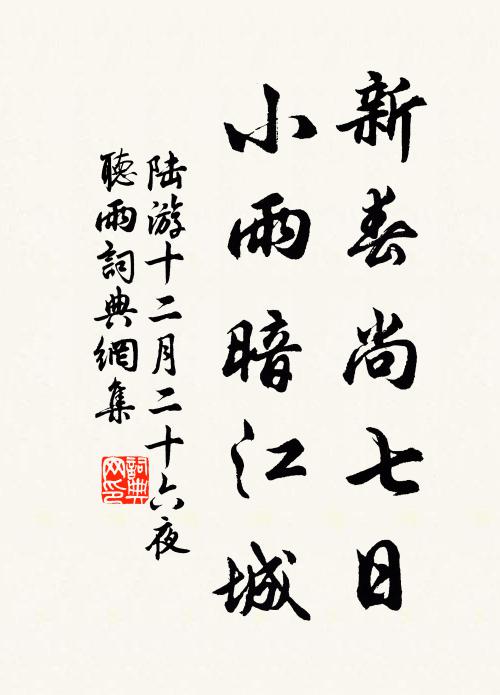 新春尚七日
小雨暗江城
陸游十二月二十六夜
聽雨詞典網集
詞典
网印